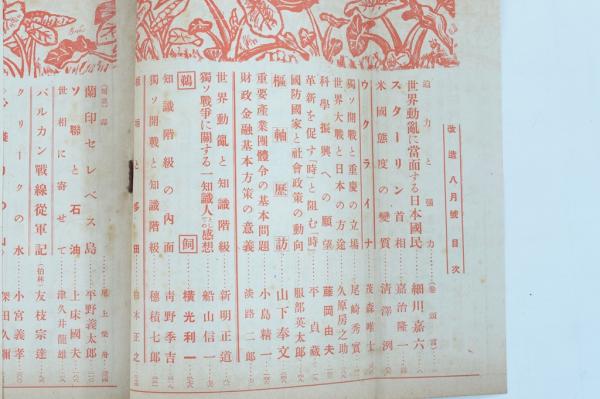 改造八月號目次
迫力と強力（卷頭言）
世界動亂に當面する日本國民 細川嘉六
スターリン首相 嘉治隆一
米國態度の變質 清澤洌
ウクライナ 茂森唯士
獨ソ開戰と重慶の立場 尾崎秀實
世界大戰と日本の方途 久原房之助
科學振興への願望 藤岡由夫
革新を促す「時」と阻む「時」 平貞藏
國防國家と社會政策の動向 服部英太郎
樞軸歷訪 山下奉文
重要產業團體令の基本問題 小島精一
財政金融基本方策の意義 淡路二郎
世界動亂と知識階級 新明正道
獨ソ戰爭に關する一知識人の感想 船山信一
鵜飼 橫光利一
知識階級の內面 靑野季吉
獨ソ開戰と知識階級 穗積七郎
蘭印セレベス島 平野義太郎
ソ聯と石油 上床國夫
世相に寄せて 津久井龍雄
バルカン戰線從軍記（伯林） 友枝宗達
クリークの水 小宮義孝
深田久彌